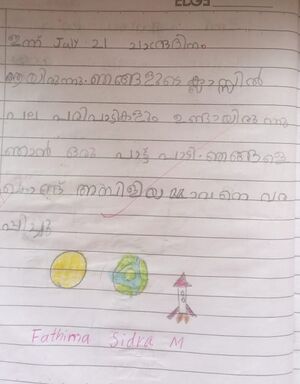 EDGE
ഇന്ന് July 21 ചാന്ദ്രദിനം
ആയിരുന്നു. ഞങ്ങളുടെ ക്ലാസ്സിൽ
പല പരിപാടികളും ഉണ്ടായിരുന്നു
ഞാൻ ഒരു പാട്ട് പാടി. ഞങ്ങളെ
കൊണ്ട് അമ്പിളിയമ്മാവനെ വര
പ്പിച്ചു
Fathima Sidra M